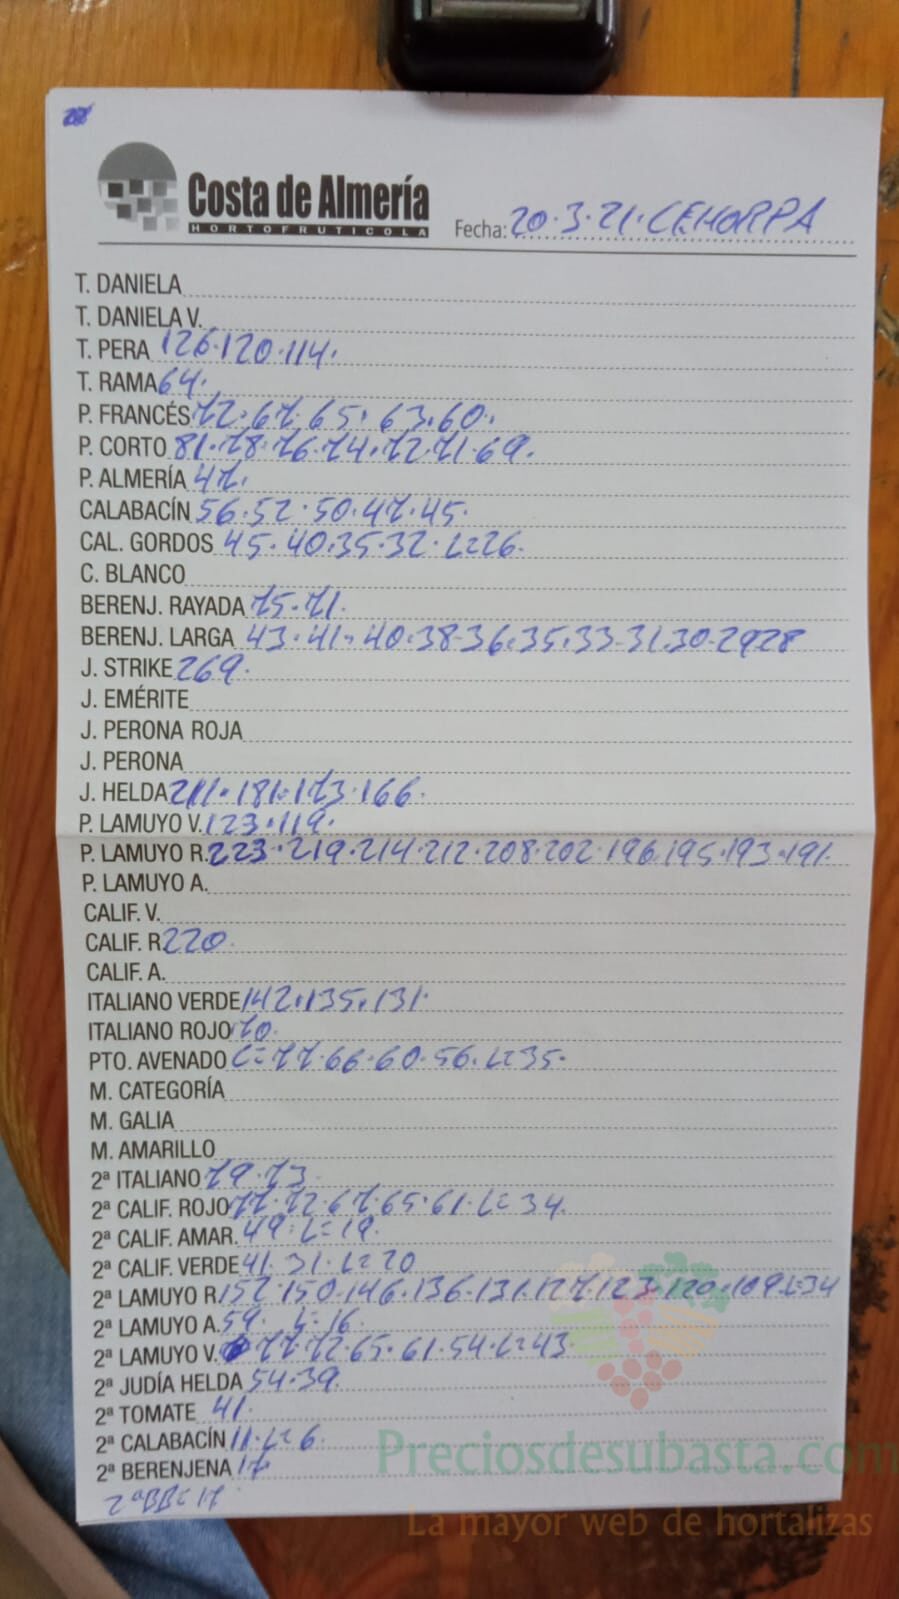 Costa de Almería
HORTOFRUTICOLA
Fecha: 20·3·21·CEHORPA
T. DANIELA
T. DANIELA V.
T. PERA 126·120·114·
T. RAMA 64·
P. FRANCÉS 72·67·65·63·60·
P. CORTO 81·78·76·74·72·71·69·
P. ALMERÍA 47·
CALABACÍN 56·52·50·47·45·
CAL. GORDOS 45·40·35·32·L=26·
C. BLANCO
BERENJ. RAYADA 75·71·
BERENJ. LARGA 43·41·40·38·36·35·33·31·30·29 28
J. STRIKE 269·
J. EMÉRITE
J. PERONA ROJA
J. PERONA
J. HELDA 211·181·173·166·
P. LAMUYO V. 123·119·
P. LAMUYO R. 223·219·214·212·208·202·196·195·193·191·
P. LAMUYO A.
CALIF. V.
CALIF. R. 220·
CALIF. A.
ITALIANO VERDE 142·135·131·
ITALIANO ROJO 70·
PTO. AVENADO C=77·66·60·56·L=35·
M. CATEGORÍA
M. GALIA
M. AMARILLO
2ª ITALIANO 79·73·
2ª CALIF. ROJO 77·72·67·65·61·L=34·
2ª CALIF. AMAR. 49·L=19·
2ª CALIF. VERDE 41·31·L=20
2ª LAMUYO R. 152·150·146·136·131·127·123·120·109·L=34
2ª LAMUYO A. 59·L=16·
2ª LAMUYO V. 77·72·65·61·54·L=43·
2ª JUDÍA HELDA 54·39·
2ª TOMATE 41·
2ª CALABACÍN 11·L=6·
2ª BERENJENA 17
2ªBB=17
Preciosdesubasta.com
La mayor web de hortalizas